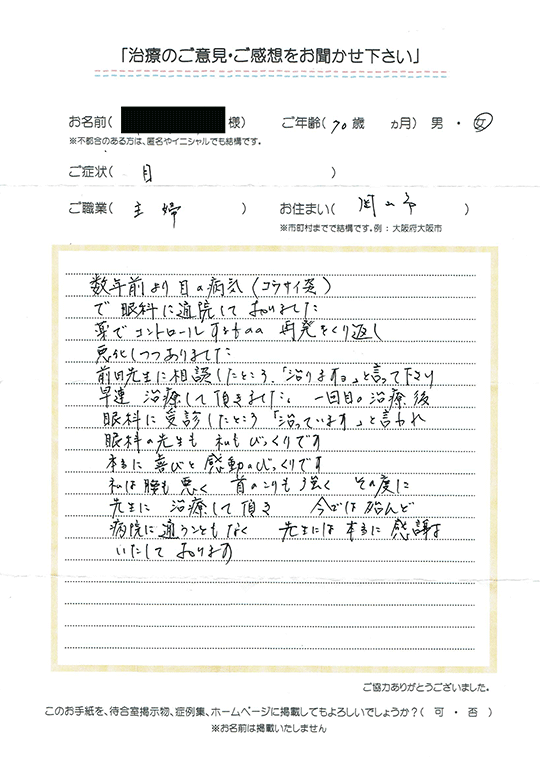 「治療のご意見・ご感想をお聞かせ下さい」
お名前( 様) ご年齢( 70歳 ヵ月) 男 ・ 女
※不都合のある方は、匿名やイニシャルでも結構です。
ご症状( 目 )
ご職業( 主婦 ) お住まい( 市 )
※市町村までで結構です。例：大阪府大阪市
数年前より目の病気 (コウサイ炎)
で眼科に通院しておりました
薬でコントロールするものの 再発をくり返し
悪化しつつありました
前田先生に相談したところ、「治りますョ」と言って下さり
早速 治療して頂きました。 一回目の治療後
眼科に受診したところ「治っています」と言われ
眼科の先生も 私もびっくりです
本当に喜びと感動のびっくりです
私は腰も悪く 首のこりも強く その度に
先生に 治療して頂き 今では殆んど
病院に通うこともなく 先生には本当に感謝
いたしております
ご協力ありがとうございました。
このお手紙を、待合室掲示物、症例集、ホームページに掲載してもよろしいでしょうか？( 可 ・ 否 )
※お名前は掲載いたしません